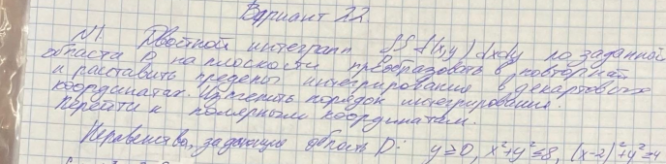 Вариант 22.
N1. Двойной интеграл ∫∫ f(x,y) dxdy по заданной
области D на плоскости преобразовать в повторный
и расставить пределы интегрирования в декартовых
координатах. Изменить порядок интегрирования.
Перейти к полярным координатам.
Неравенства, задающие область D: y≥0, x²+y²≤8, (x-2)²+y²≤4